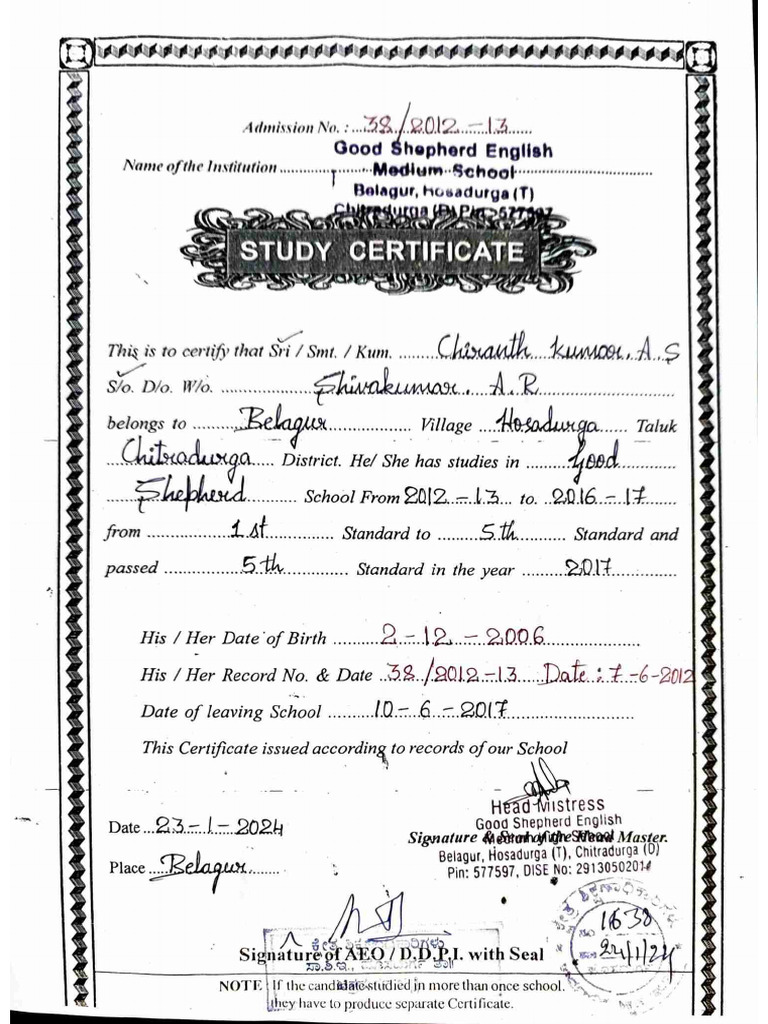 Admission No. : 38/2012-13
Good Shepherd English
Name of the Institution Medium School
Belagur, Hosadurga (T)
Chitradurga (D) Pin: 577597
STUDY CERTIFICATE
This is to certify that Sri / Smt. / Kum. Chiranth Kumar. A.S
S/o. D/o. W/o. Shivakumar. A.R
belongs to Belagur Village Hosadurga Taluk
Chitradurga District. He/ She has studies in Good
Shepherd School From 2012-13 to. 2016-17
from 1st Standard to 5th Standard and
passed 5th Standard in the year 2017
His / Her Date of Birth 2-12-2006
His / Her Record No. & Date 38/2012-13 Date: 7-6-2012
Date of leaving School 10-6-2017
This Certificate issued according to records of our School
Head Mistress
Date 23-1-2024
Good Shepherd English
Signature & Seal of the Head Master.
Belagur, Hosadurga (T), Chitradurga (D)
Place Belagur
Pin: 577597, DISE No:
1638
24/1/24
Signature of AEO / D.D.P.I. with Seal
NOTE : If the candidate studied in more than once school.
they have to produce separate Certificate.